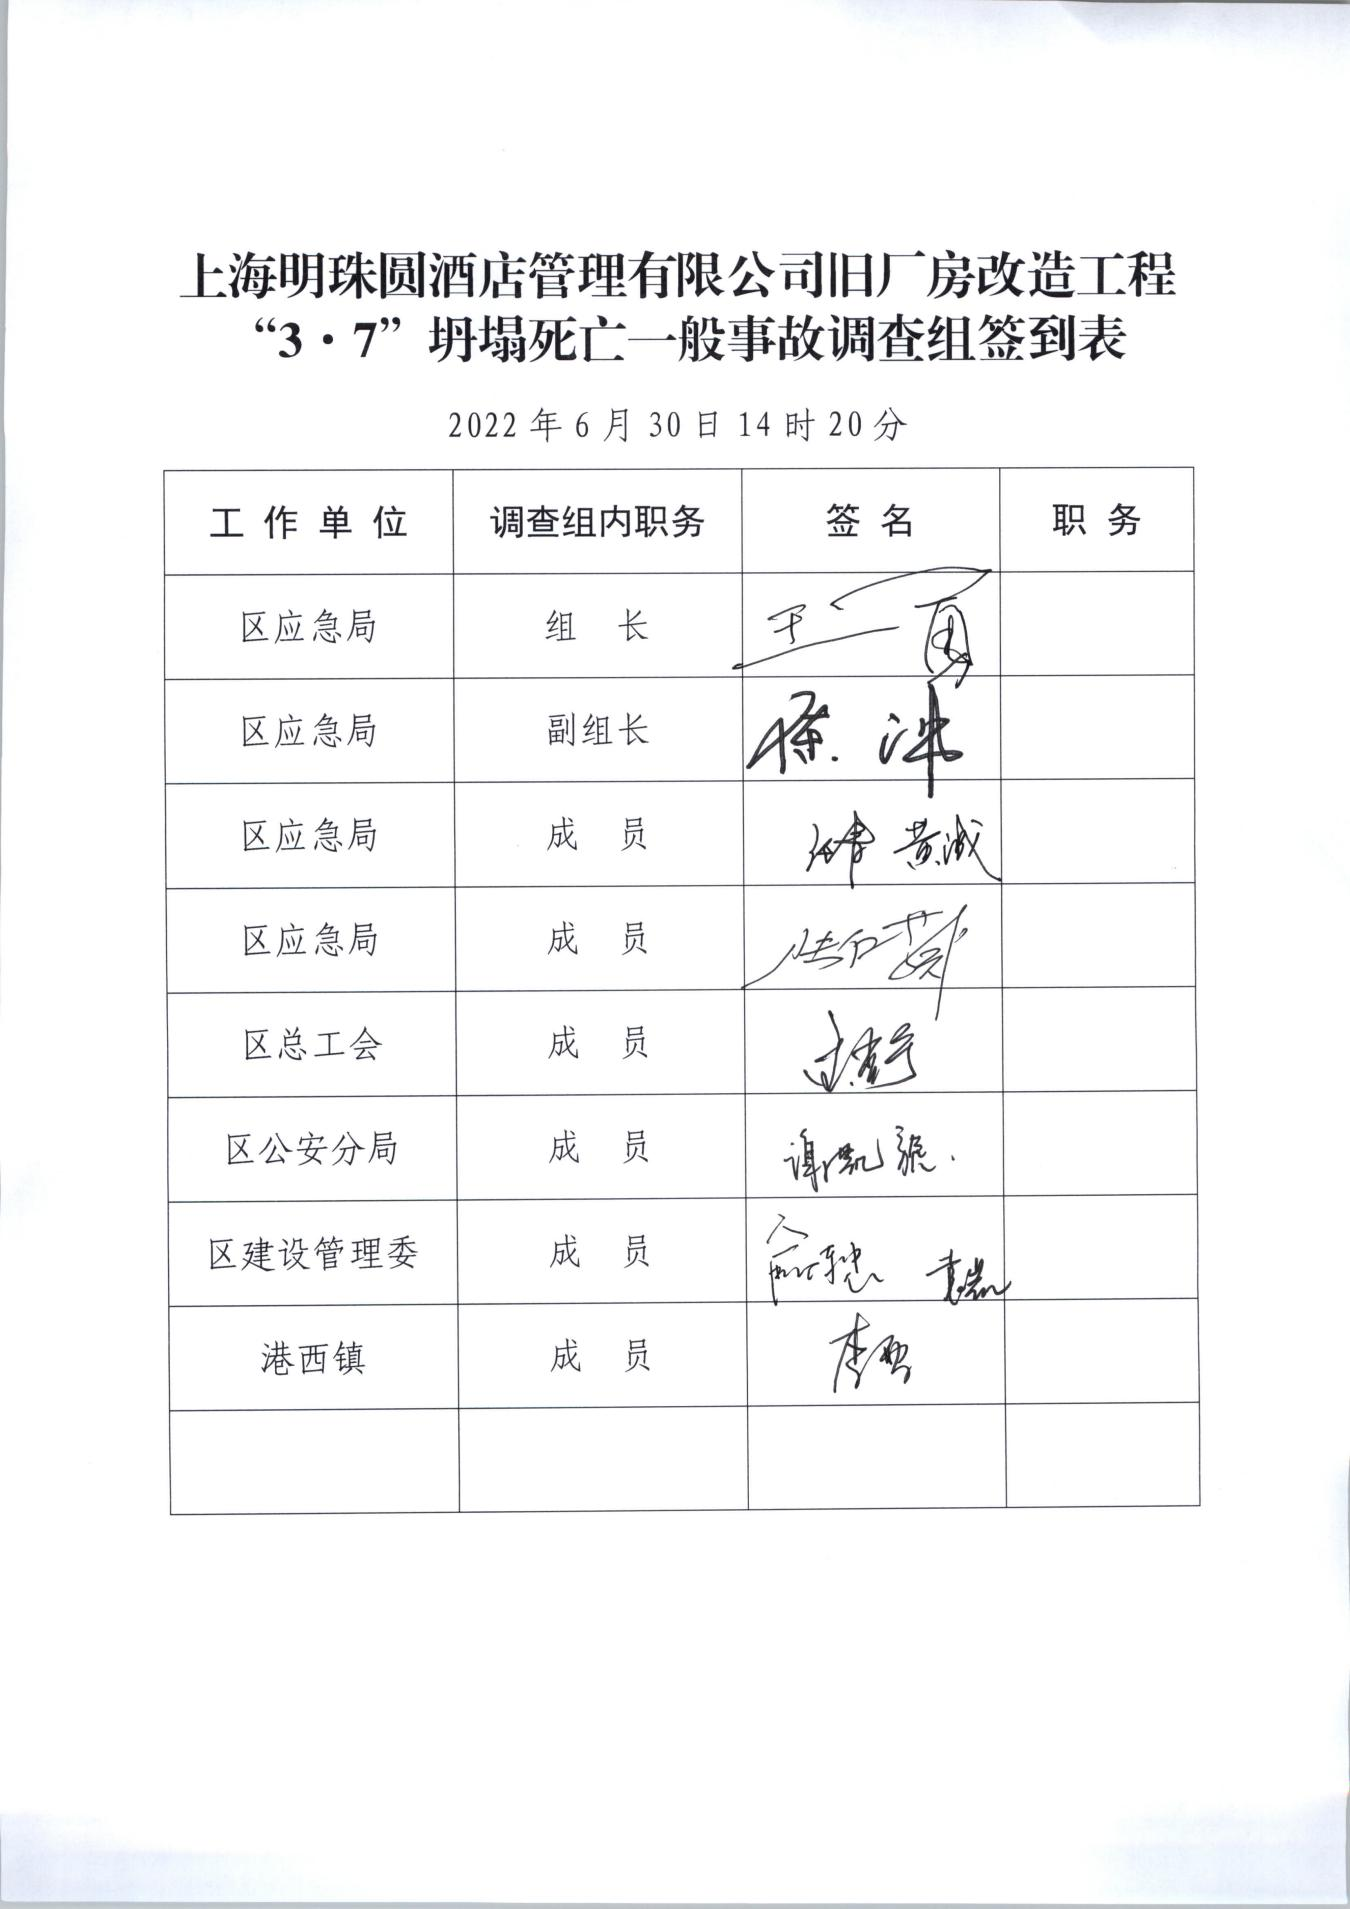 上海明珠圆酒店管理有限公司旧厂房改造工程
“3·7”坍塌死亡一般事故调查组签到表
2022年6月30日14时20分
工作单位 调查组内职务 签名 职务
区应急局 组 长
区应急局 副组长
区应急局 成 员 黄诚
区应急局 成 员
区总工会 成 员
区公安分局 成 员
区建设管理委 成 员
港西镇 成 员